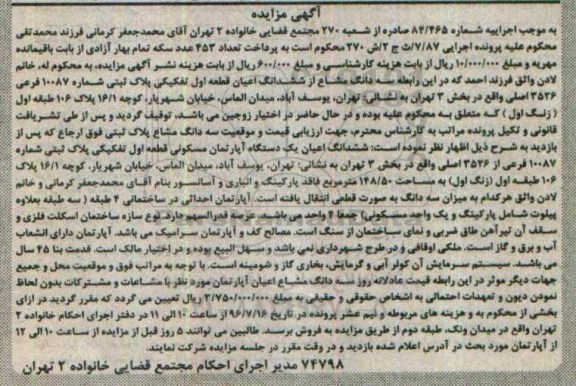 آگهی مزایده
به موجب اجراییه شماره ۸۴/۴۶۵ صادره از شعبه ۲۷۰ مجتمع قضایی خانواده ۲ تهران آقای محمدجعفر کرمانی فرزند محمدتقی
محکوم علیه پرونده اجرایی ۷/۸۷/ت ج ۲/ش ۲۷۰ محکوم است به پرداخت تعداد ۴۵۳ عدد سکه تمام بهار آزادی از بابت باقیمانده
مهریه و مبلغ ۱۰/۰۰۰/۰۰۰ ریال از بابت هزینه کارشناسی و مبلغ ۶۰۰/۰۰۰ ریال از بابت هزینه نشر آگهی مزایده، به محکوم له، خانم
لادن واثق فرزند احمد که در این رابطه سه دانگ مشاع از ششدانگ اعیان قطعه اول تفکیکی پلاک ثبتی شماره ۱۰۰۸۷ فرعی
۳۵۲۶ اصلی واقع در بخش ۳ تهران به نشانی: تهران، یوسف آباد، میدان الماس، خیابان شهریار، کوچه ۱۶/۱ پلاک ۱۰۶ طبقه اول
(زنگ اول) که متعلق به محکوم علیه بوده و در حال حاضر در اختیار زوجین می باشد، توقیف گردید و پس از طی تشریفات
قانونی و تکیل پرونده مراتب به کارشناس محترم، جهت ارزیابی قیمت و موقعیت سه دانگ مشاع پلاک ثبتی فوق ارجاع که پس از
بازدید به شرح ذیل اظهار نظر نموده است: ششدانگ اعیان یک دستگاه آپارتمان مسکونی قطعه اول تفکیکی پلاک ثبتی شماره
۱۰۰۸۷ فرعی از ۳۵۲۶ اصلی واقع در بخش ۳ تهران به نشانی: تهران، یوسف آباد، میدان الماس، خیابان شهریار، کوچه ۱۶/۱ پلاک
۱۰۶ طبقه اول (زنگ اول) به مساحت ۱۴۸/۵۰ مترمربع فاقد پارکینگ و انباری و آسانسور بنام آقای محمدجعفر کرمانی و خانم
لادن واثق هرکدام به میزان سه دانگ به صورت قطعی انتقال یافته است. آپارتمان احداثی در ساختمانی ۴ طبقه (سه طبقه بعلاوه
پیلوت شامل پارکینگ و یک واحد مسکونی) جمعا ۴ واحد می باشد. عرصه قدرالسهم دارد. نوع سازه ساختمان اسکلت فلزی و
سقف آن تیرآهن طاق ضربی و نمای ساختمان از سنگ است. مصالح کف و آپارتمان سرامیک می باشد. آپارتمان دارای انشعاب
آب و برق و گاز است. ملکی اوقافی و در طرح شهرداری نمی باشد و سهل البیع بوده و در اختیار مالک است. قدمت بنا ۴۵ سال
می باشد. سیستم سرمایش آن کولر آبی و گرمایش، بخاری گاز و شومینه است. با توجه به مراتب فوق و موقعیت محل و جمیع
جهات دیگر موثر در این رابطه قیمت عادلانه روز سه دانگ مشاع اعیان آپارتمان مورد نظر با مشاعات و مشترکات بدون لحاظ
نمودن دیون و تعهدات احتمالی به اشخاص حقوقی و حقیقی به مبلغ ۳/۷۵۰/۰۰۰/۰۰۰ ریال تعیین می گردد که مقرر گردید در ازای
بخشی از محکوم به و هزینه های مربوطه و نیم عشر پرونده در تاریخ ۹۶/۷/۱۶ از ساعت ۱۰ الی ۱۱ در دفتر اجرای احکام خانواده ۲
تهران واقع در میدان ونک، طبقه دوم از طریق مزایده به فروش برسد. طالبین می توانند ۵ روز قبل از مزایده از ساعت ۱۰ الی ۱۲
از آپارتمان مورد بحث در آدرس اعلام شده بازدید و در وقت مقرر در جلسه مزایده شرکت نمایند.
۷۴۷۹۸ مدیر اجرای احکام مجتمع قضایی خانواده ۲ تهران